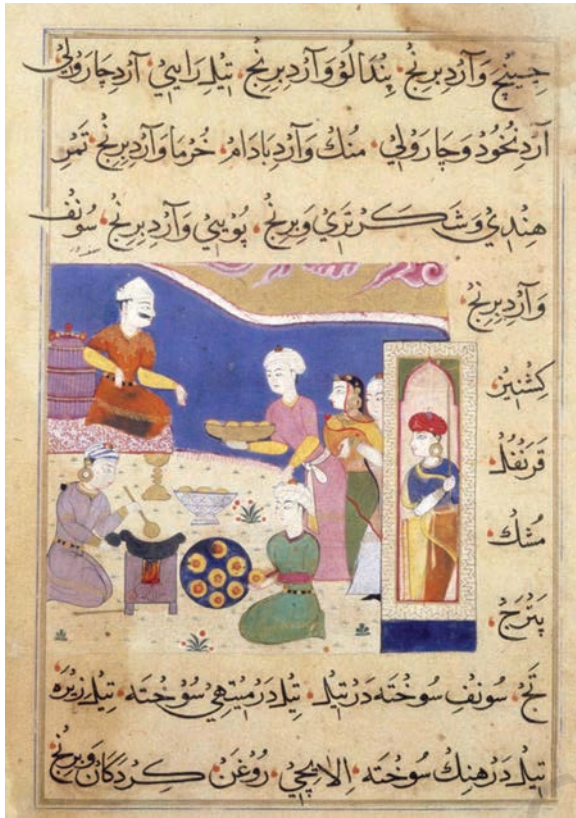 جینچ وَآرد برنج، پنڈالُو وَآرد برنج، تیلِ رایی، آرد چارولی
آرد نخود وچارولی، منك وَآرد بادام، خرما وَآرد برنج، تمر
هندی وشَکر تری وَبرنج، پویی وَآرد برنج، سونف
وَآرد برنج،
کشنیز
قرنفل،
مشك
پترج،
تج، سونف سوخته در تیل، تیل در میتهی سوخته، تیل زیره
تیل در هنك سوخته، الایچی، روغن کردکان وَبرنج